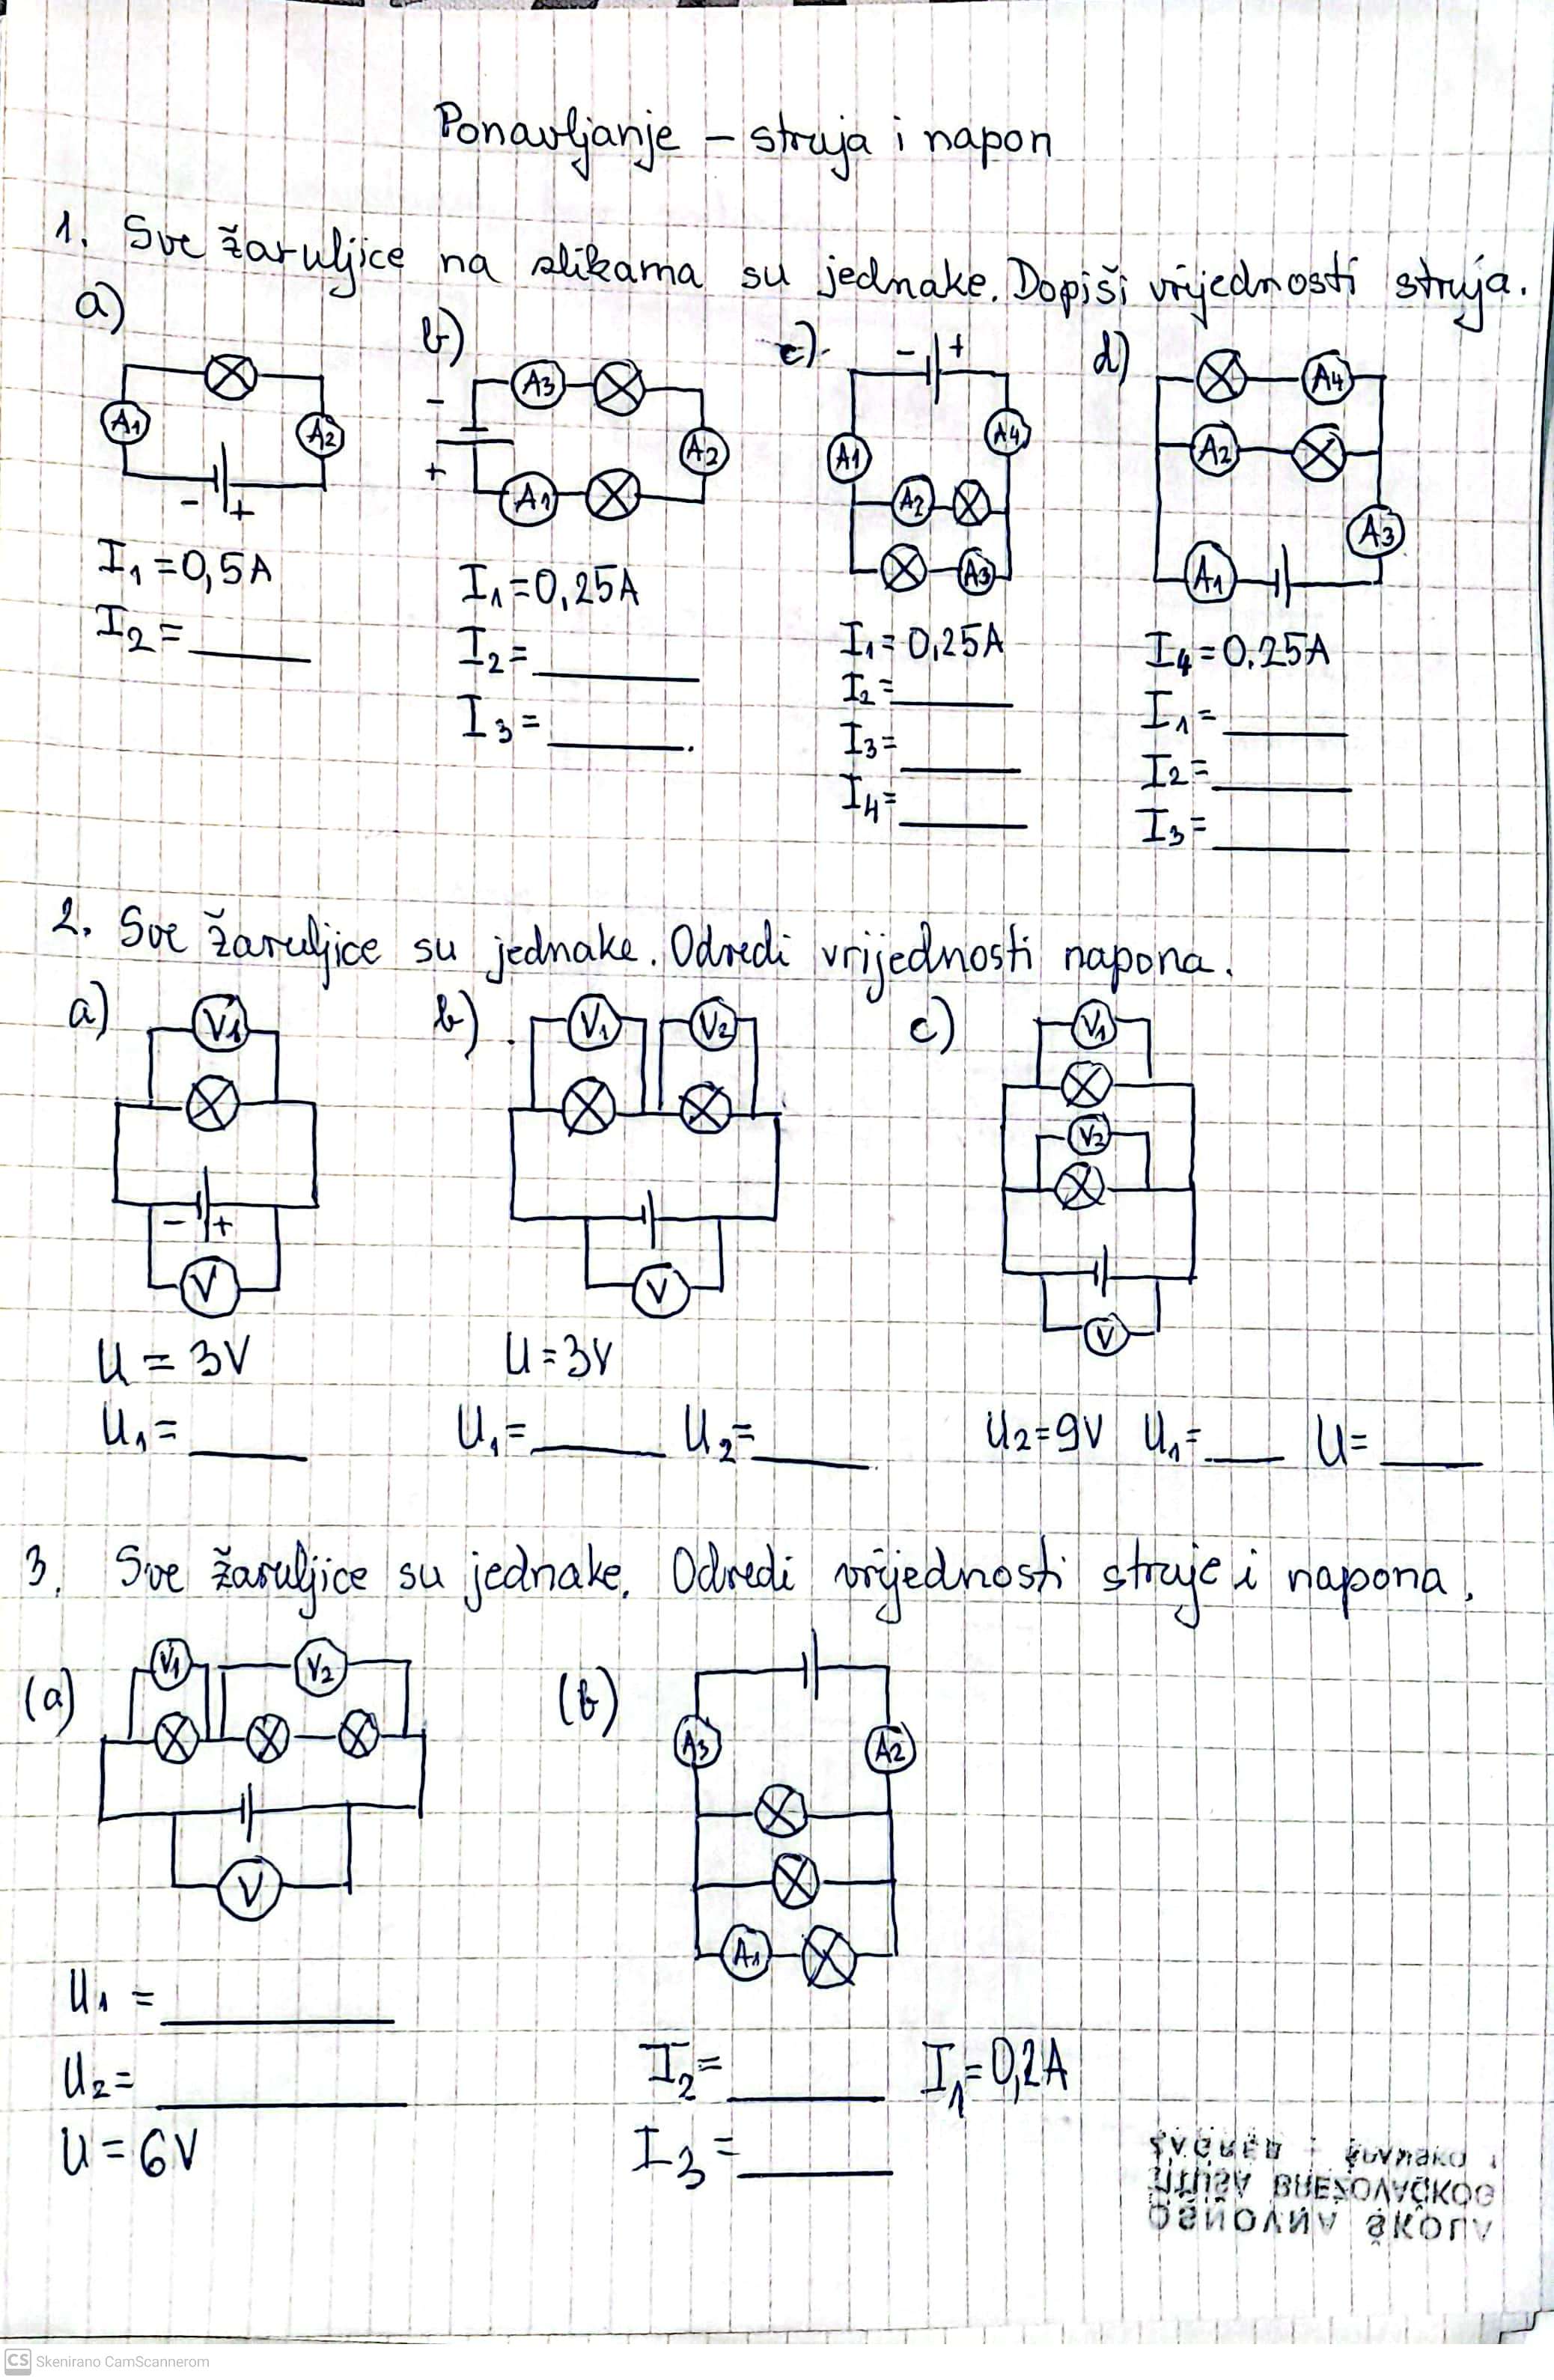 Ponavljanje – struja i napon
1. Sve žaruljice na slikama su jednake. Dopiši vrijednosti struja.
a)
A1
A2
- +
I1 = 0,5A
I2 = ____
b)
-
+
A3
A2
A1
I1 = 0,25A
I2 = ____
I3 = ____.
c)
- +
A1
A4
A2
A3
I1 = 0,25A
I2 = ____
I3 = ____
I4 = ____
d)
A4
A2
A3
A1
I4 = 0.25A
I1 = ____
I2 = ____
I3 = ____
2. Sve žaruljice su jednake. Odredi vrijednosti napona.
a)
V1
- +
V
U = 3V
U1 = ____
b)
V1 V2
V
U = 3V
U1 = ____ U2 = ____
c)
V1
V2
V
U2 = 9V U1 = ____ U = ____
3. Sve žaruljice su jednake. Odredi vrijednosti struje i napona.
(a)
V1 V2
V
U1 = ____
U2 = ____
U = 6V
(b)
A3 A2
A1
I2 = ____ I1 = 0,2A
I3 = ____
OSNOVNA ŠKOLA
TITUŠA BREZOVAČKOG
ZAGREB
CS Skenirano CamScannerom